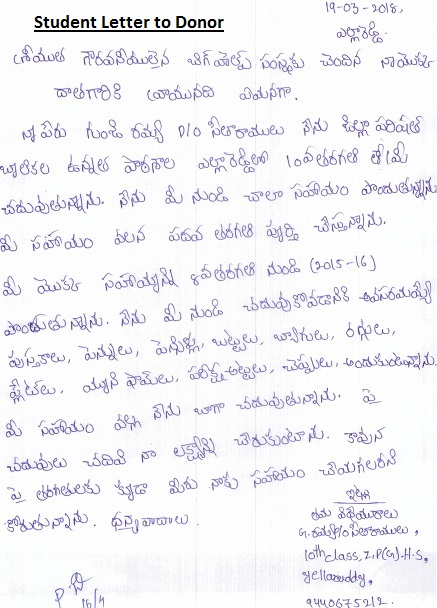 Student Letter to Donor
19-03-2018,
ఎల్లారెడ్డి.
శ్రీయుత గౌరవనీయులైన బిగ్ హెల్ప్ సంస్థకు చెందిన నాయొక్క
దాతగారికి వ్రాయునది ఏమనగా.
నా పేరు గుండి రమ్య D/o సీతారాములు నేను జిల్లా పరిషత్
బాలికల ఉన్నత పాఠశాల ఎల్లారెడ్డిలో 10వతరగతి
చదువుతున్నాను. నేను మీ నుండి చాలా సహాయం పొందుతున్నాను
మీ సహాయం వలన పదవ తరగతి పూర్తి చేస్తున్నాను.
మీ యొక్క సహాయాన్ని 8వతరగతి నుండి (2015-16)
పొందుతున్నాను. నేను మీ నుండి చదువుకోవడానికి అవసరమయ్యే
పుస్తకాలు, పెన్నులు, పెన్సిళ్లు, బుట్టలు, బ్యాగులు, రగ్గులు,
ప్లేట్‌లు, యూనిఫామ్‌లు, పరీక్ష అట్టలు, చెప్పులు, అందుకుంటున్నాను.
మీ సహాయం వల్ల నేను బాగా చదువుతున్నాను. పై
చదువులు చదివి నా లక్ష్యాన్ని చేరుకుంటాను. కావున
పై తరగతులకు కూడా మీరు నాకు సహాయం చేయగలరని
కోరుతున్నాను. ధన్యవాదాలు.
ఇట్లు
తమ విధేయురాలు
G. రమ్య D/o సీతారాములు,
10th class, Z.P(G).H.S,
yellareddy,
9440675212.
16/4